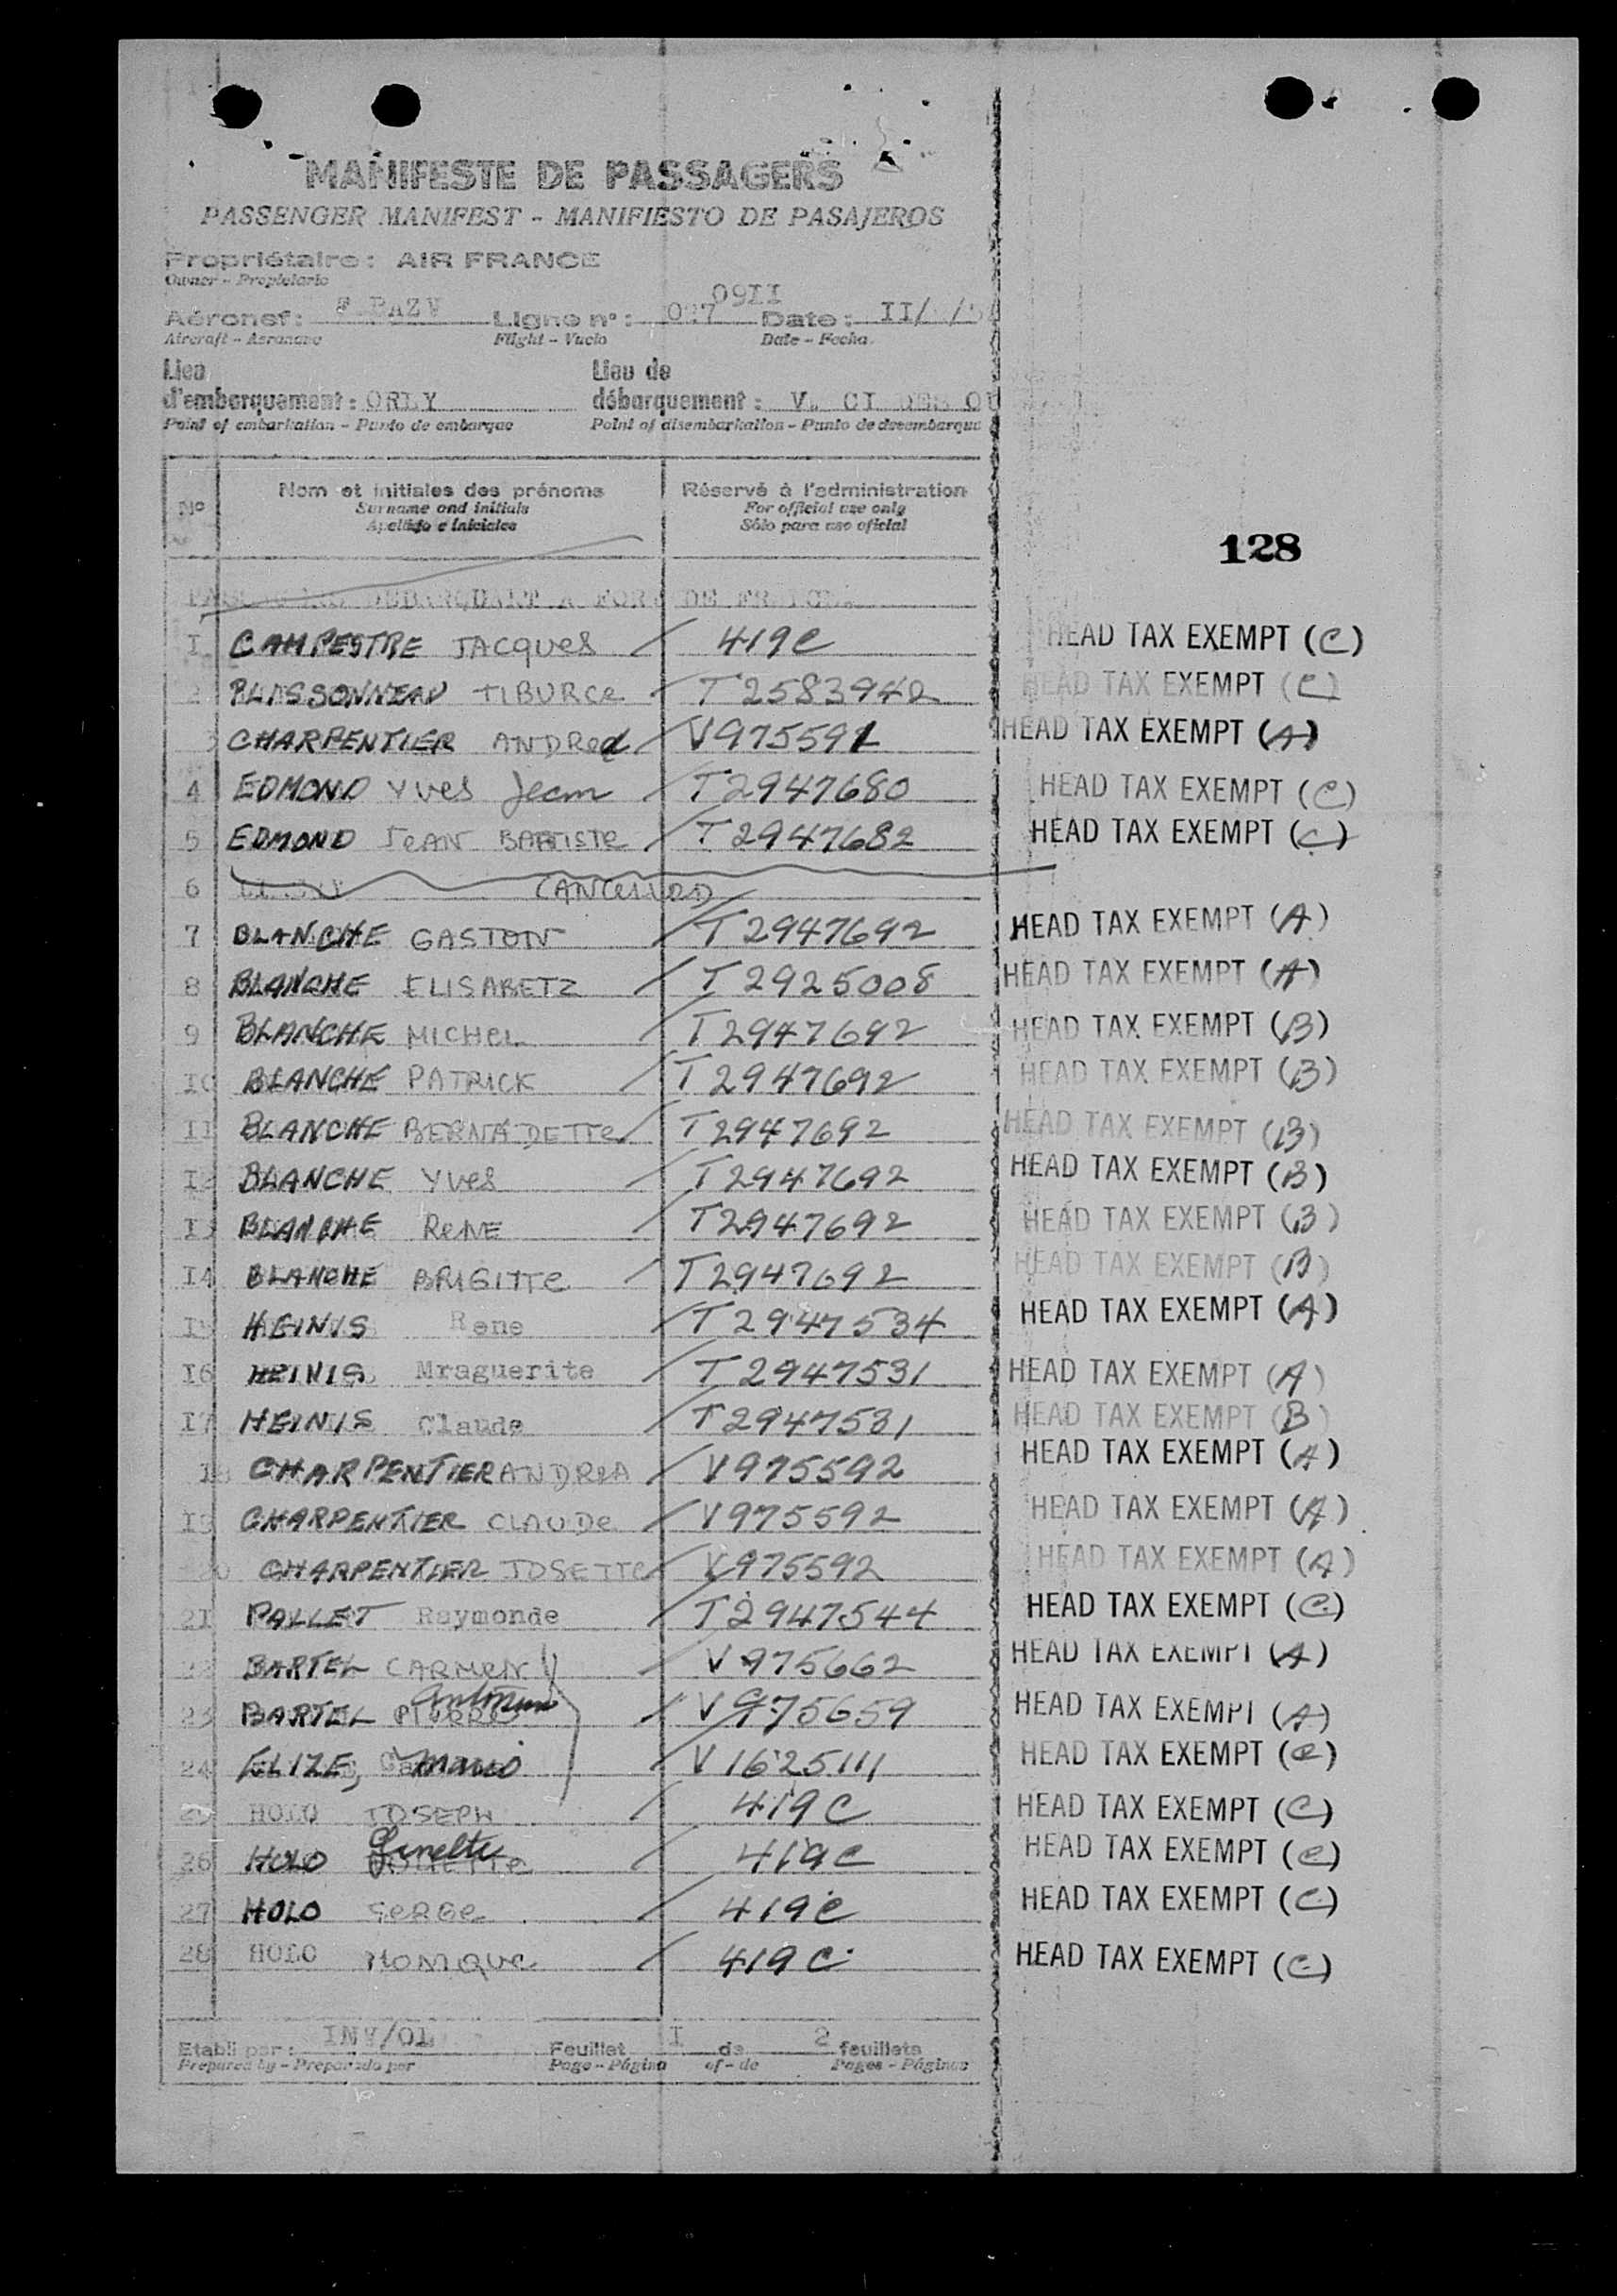 MANIFESTE DE PASSAGERS
PASSENGER MANIFEST - MANIFIESTO DE PASAJEROS
Propriétaire : AIR FRANCE
Owner - Propietario
09II
Aéronef : BAZV Ligne n° : 027 Date : II/ /5
Aircraft - Aeronave Flight - Vuelo Date - Fecha
Lieu Lieu de
d'embarquement : ORLY débarquement : V. CI DES OU
Point of embarkation - Punto de embarque Point of disembarkation - Punto de desembarque
N° Nom et initiales des prénoms Réservé à l'administration
Surname and initials For official use only
Apellido e iniciales Sólo para uso oficial
128
DEBARQUANT A FORT DE FRANCE
I CAMPESTRE JACQUES / 419C HEAD TAX EXEMPT (C)
2 PLAISSONNEAU TIBURCE / T2583942 HEAD TAX EXEMPT (C)
3 CHARPENTIER ANDRED / V975591 HEAD TAX EXEMPT (A)
4 EDMOND YVES Jean / T2947680 HEAD TAX EXEMPT (C)
5 EDMOND JEAN BAPTISTE / T2947682 HEAD TAX EXEMPT (C)
6 CANCELLED
7 BLANCHE GASTON / T2947692 HEAD TAX EXEMPT (A)
8 BLANCHE ELISABETZ / T2925008 HEAD TAX EXEMPT (A)
9 BLANCHE MICHEL / T2947692 HEAD TAX EXEMPT (B)
I0 BLANCHE PATRICK / T2947692 HEAD TAX EXEMPT (B)
II BLANCHE BERNADETTE / T2947692 HEAD TAX EXEMPT (B)
I2 BLANCHE YVES / T2947692 HEAD TAX EXEMPT (B)
I3 BLANCHE RENE / T2947692 HEAD TAX EXEMPT (B)
I4 BLANCHE BRIGITTE / T2947692 HEAD TAX EXEMPT (B)
I5 HEINIS Rene / T2947534 HEAD TAX EXEMPT (A)
I6 HEINIS Mraguerite / T2947531 HEAD TAX EXEMPT (A)
I7 HEINIS Claude / T2947531 HEAD TAX EXEMPT (B)
I8 CHARPENTIER ANDREA / V975592 HEAD TAX EXEMPT (A)
I9 CHARPENTIER CLAUDE / V975592 HEAD TAX EXEMPT (A)
20 CHARPENTIER JOSETTE / V975592 HEAD TAX EXEMPT (A)
2I PALLET Raymonde / T2947544 HEAD TAX EXEMPT (C)
22 BARTEL CARMEN / V975662 HEAD TAX EXEMPT (A)
23 BARTEL PIERRE / V975659 HEAD TAX EXEMPT (A)
24 ELIZE, Mario V1625111 HEAD TAX EXEMPT (C)
25 HOLO JOSEPH / 419C HEAD TAX EXEMPT (C)
26 HOLO Ginette / 419C HEAD TAX EXEMPT (C)
27 HOLO SERGE / 419C HEAD TAX EXEMPT (C)
28 HOLO MONIQUE / 419C HEAD TAX EXEMPT (C)
Etabli par : INV/OL Feuillet I de 2 feuillets
Prepared by - Preparado por Page - Página of - de Pages - Páginas